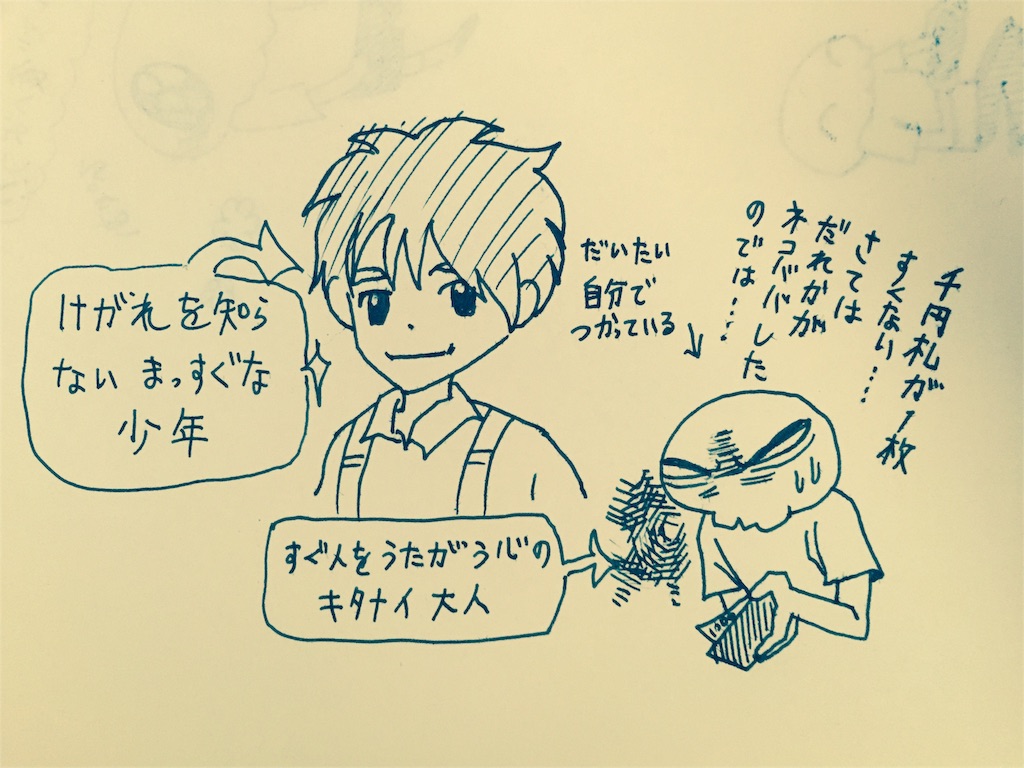 けがれを知ら
ない まっすぐな
少年
だいたい
自分で
つかっている
千円札が1枚
すくない…
さては
だれかが
ネコババした
のでは…
すぐ人をうたがう心の
キタナイ大人